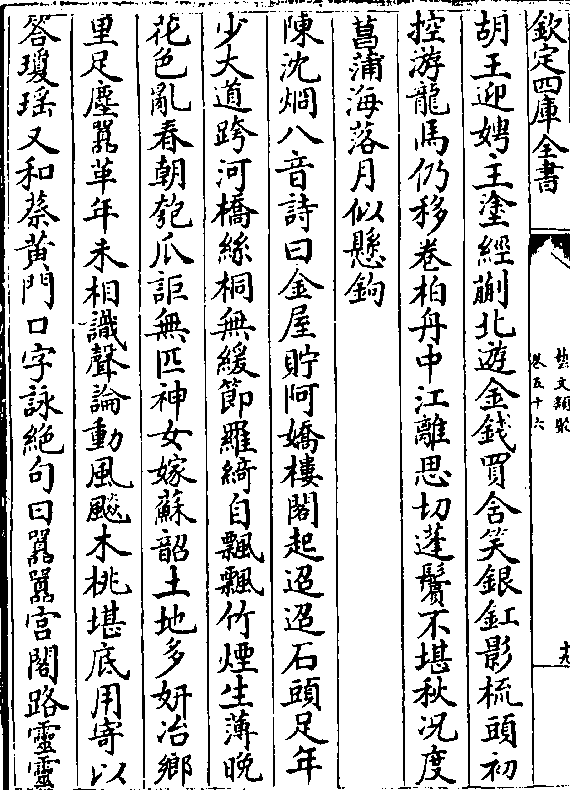 欽定四庫全書
藝文類聚
卷五十六
十九
胡王迎娉主塗經蒯北遊金錢買含笑銀釭影梳頭初
控游龍馬仍移卷柏舟中江離思切蓬鬢不堪秋况度
菖蒲海落月似懸鉤
陳沈炯八音詩曰金屋貯阿嬌樓閣起迢迢石頭足年
少大道跨河橋絲桐無緩節羅綺自飄飄竹煙生薄晚
花色亂春朝匏瓜詎無匹神女嫁蘇韶土地多妍冶鄉
里足塵囂革年未相識聲論動風飇木桃堪底用寄以
答瓊瑶又和蔡黄門口字詠絶句曰囂囂宫閣路靈靈